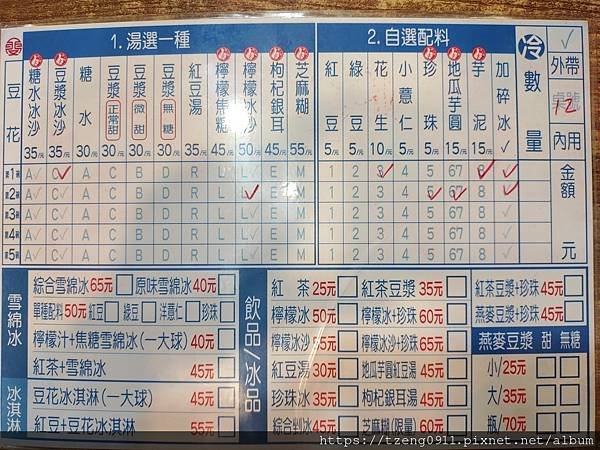 1.湯選一種 2.自選配料 冷 數量
豆花
糖水冰沙 35/元
豆漿冰沙 35/元
糖水 30/元
豆漿 正常甜 30/元
豆漿 微甜 30/元
豆漿 無糖 30/元
紅豆湯 35/元
檸檬焦糖 40/元
檸檬冰沙 50/元
枸杞銀耳 45/元
芝麻糊 55/元
紅豆 5/元
綠豆 5/元
花生 10/元
小薏仁 5/元
珍珠 5/元
地瓜芋圓 15/元
芋泥 15/元
加碎冰
外帶
桌號
12
內用
金額 元
第1碗 A C A C B D R L L E M 1 2 3 4 5 67 8
第2碗 A C A C B D R L L E M 1 2 3 4 5 67 8
第3碗 A C A C B D R L L E M 1 2 3 4 5 67 8
第4碗 A C A C B D R L L E M 1 2 3 4 5 67 8
第5碗 A C A C B D R L L E M 1 2 3 4 5 67 8
雪綿冰
綜合雪綿冰65元 原味雪綿冰40元
單種配料50元 紅豆 綠豆 洋薏仁 珍珠
檸檬汁+焦糖雪綿冰(一大球) 40元
紅茶+雪綿冰 45元
冰淇淋
豆花冰淇淋(一大球) 45元
紅豆+豆花冰淇淋 55元
飲品/冰品
紅茶 25元 紅茶豆漿 35元
檸檬冰 50元 檸檬冰+珍珠 60元
檸檬冰沙 55元 檸檬冰沙+珍珠 65元
紅豆湯 30元 地瓜芋圓紅豆湯 45元
珍珠冰 35元 枸杞銀耳湯 45元
綜合剉冰 45元 芝麻糊(限量) 60元
紅茶豆漿+珍珠 45元
燕麥豆漿+珍珠 45元
燕麥豆漿 甜 無糖
小/25元
大/35元
瓶/70元
https://tzeng0911.pixnet.net/album